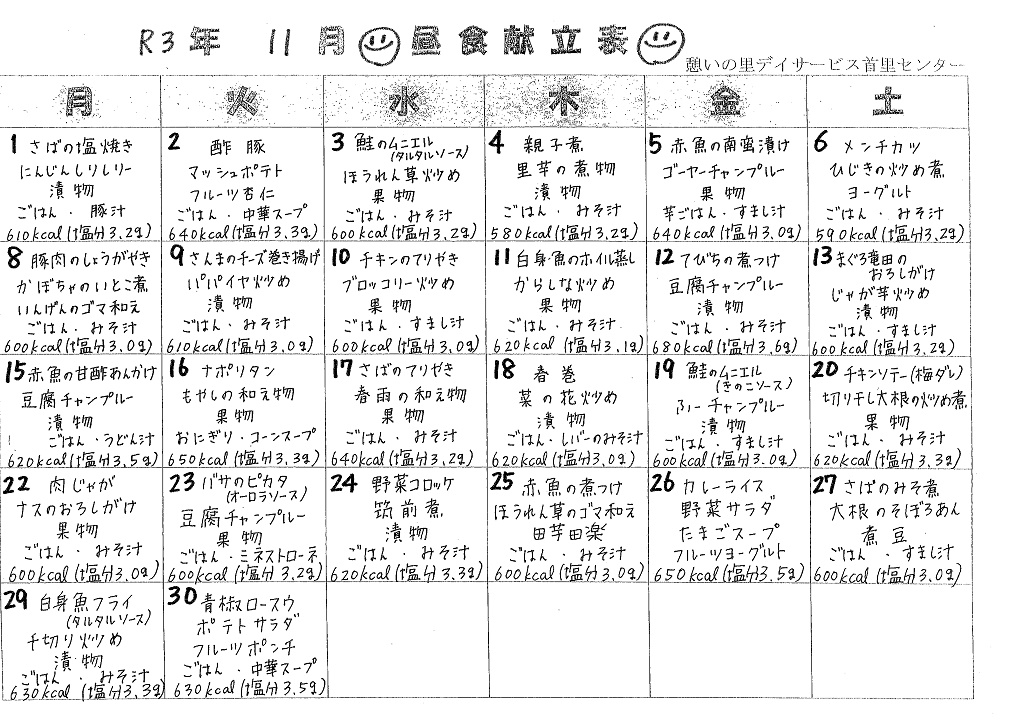 R3年 11月 昼食献立表
憩いの里デイサービス首里センター
月 火 水 木 金 土
1 さばの塩焼き
にんじんしりしりー
漬物
ごはん・豚汁
610kcal(塩分3.2g)
2 酢豚
マッシュポテト
フルーツ杏仁
ごはん・中華スープ
640kcal(塩分3.3g)
3 鮭のムニエル
(タルタルソース)
ほうれん草炒め
果物
ごはん・みそ汁
600kcal(塩分3.2g)
4 親子煮
里芋の煮物
漬物
ごはん・みそ汁
580kcal(塩分3.2g)
5 赤魚の南蛮漬け
ゴーヤーチャンプルー
果物
芋ごはん・すまし汁
640kcal(塩分3.0g)
6 メンチカツ
ひじきの炒め煮
ヨーグルト
ごはん・みそ汁
590kcal(塩分3.2g)
8 豚肉のしょうがやき
かぼちゃのいとこ煮
いんげんのゴマ和え
ごはん・みそ汁
600kcal(塩分3.0g)
9 さんまのチーズ巻き揚げ
パパイヤ炒め
漬物
ごはん・みそ汁
610kcal(塩分3.0g)
10 チキンのテリやき
ブロッコリー炒め
果物
ごはん・すまし汁
600kcal(塩分3.0g)
11 白身魚のホイル蒸し
からしな炒め
果物
ごはん・みそ汁
620kcal(塩分3.1g)
12 てびちの煮つけ
豆腐チャンプルー
漬物
ごはん・みそ汁
680kcal(塩分3.6g)
13 まぐろ竜田の
おろしがけ
じゃが芋炒め
漬物
ごはん・すまし汁
600kcal(塩分3.2g)
15 赤魚の甘酢あんかけ
豆腐チャンプルー
漬物
ごはん・うどん汁
620kcal(塩分3.5g)
16 ナポリタン
もやしの和え物
果物
おにぎり・コーンスープ
650kcal(塩分3.3g)
17 さばのテリやき
春雨の和え物
果物
ごはん・みそ汁
640kcal(塩分3.2g)
18 春巻
菜の花炒め
漬物
ごはん・レバーのみそ汁
620kcal(塩分3.0g)
19 鮭のムニエル
(きのこソース)
ふーチャンプルー
漬物
ごはん・すまし汁
600kcal(塩分3.0g)
20 チキンソテー(梅ダレ)
切り干し大根の炒め煮
果物
ごはん・みそ汁
620kcal(塩分3.3g)
22 肉じゃが
ナスのおろしがけ
果物
ごはん・みそ汁
600kcal(塩分3.0g)
23 バサのピカタ
(オーロラソース)
豆腐チャンプルー
果物
ごはん・ミネストローネ
600kcal(塩分3.2g)
24 野菜コロッケ
筑前煮
漬物
ごはん・みそ汁
620kcal(塩分3.3g)
25 赤魚の煮つけ
ほうれん草のゴマ和え
田芋田楽
ごはん・みそ汁
600kcal(塩分3.0g)
26 カレーライス
野菜サラダ
たまごスープ
フルーツヨーグルト
650kcal(塩分3.5g)
27 さばのみそ煮
大根のそぼろあん
煮豆
ごはん・すまし汁
600kcal(塩分3.0g)
29 白身魚フライ
(タルタルソース)
千切り炒め
漬物
ごはん・みそ汁
630kcal(塩分3.3g)
30 青椒ロースウ
ポテトサラダ
フルーツポンチ
ごはん・中華スープ
630kcal(塩分3.5g)